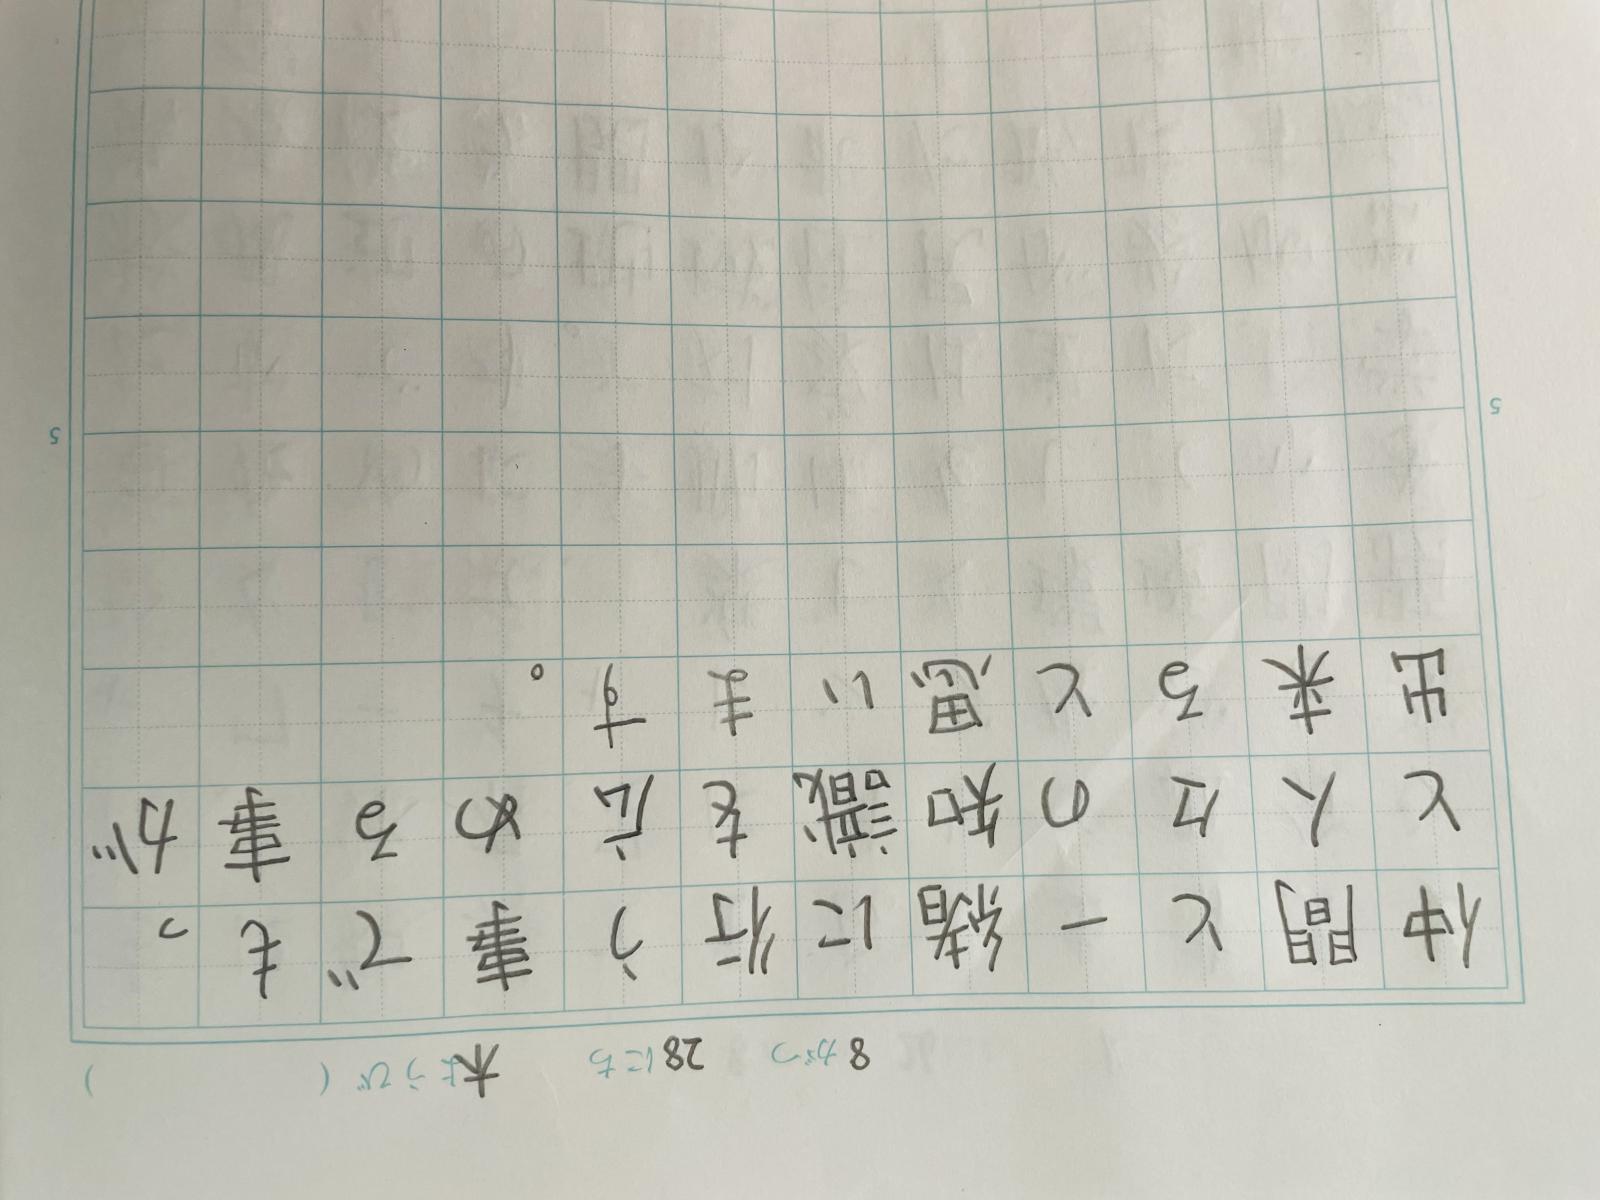 8がつ 28にち 木ようび (　　)
仲間と一緒に行う事でもっ
と人々の知識を広める事が
出来ると思います。
5
5